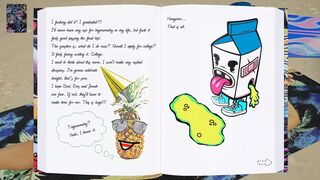 I fucking did it! I graduated!!!
I'd never have any use for trigonometry in my life, but fuck it
feels good passing the final test.
The question is, what do I do now? Should I apply for college?
It feels funny writing it. College.
I need to think about this more. I won't make any rushed
decisions. I'm gonna celebrate
tonight, that's for sure.
I hope Uriel, Emy and Jonah
are free. If not, they'd have to
make time for me. This is huge!!!
Trigonometry?
Yeah, I know it.
Hangover...
That is all.